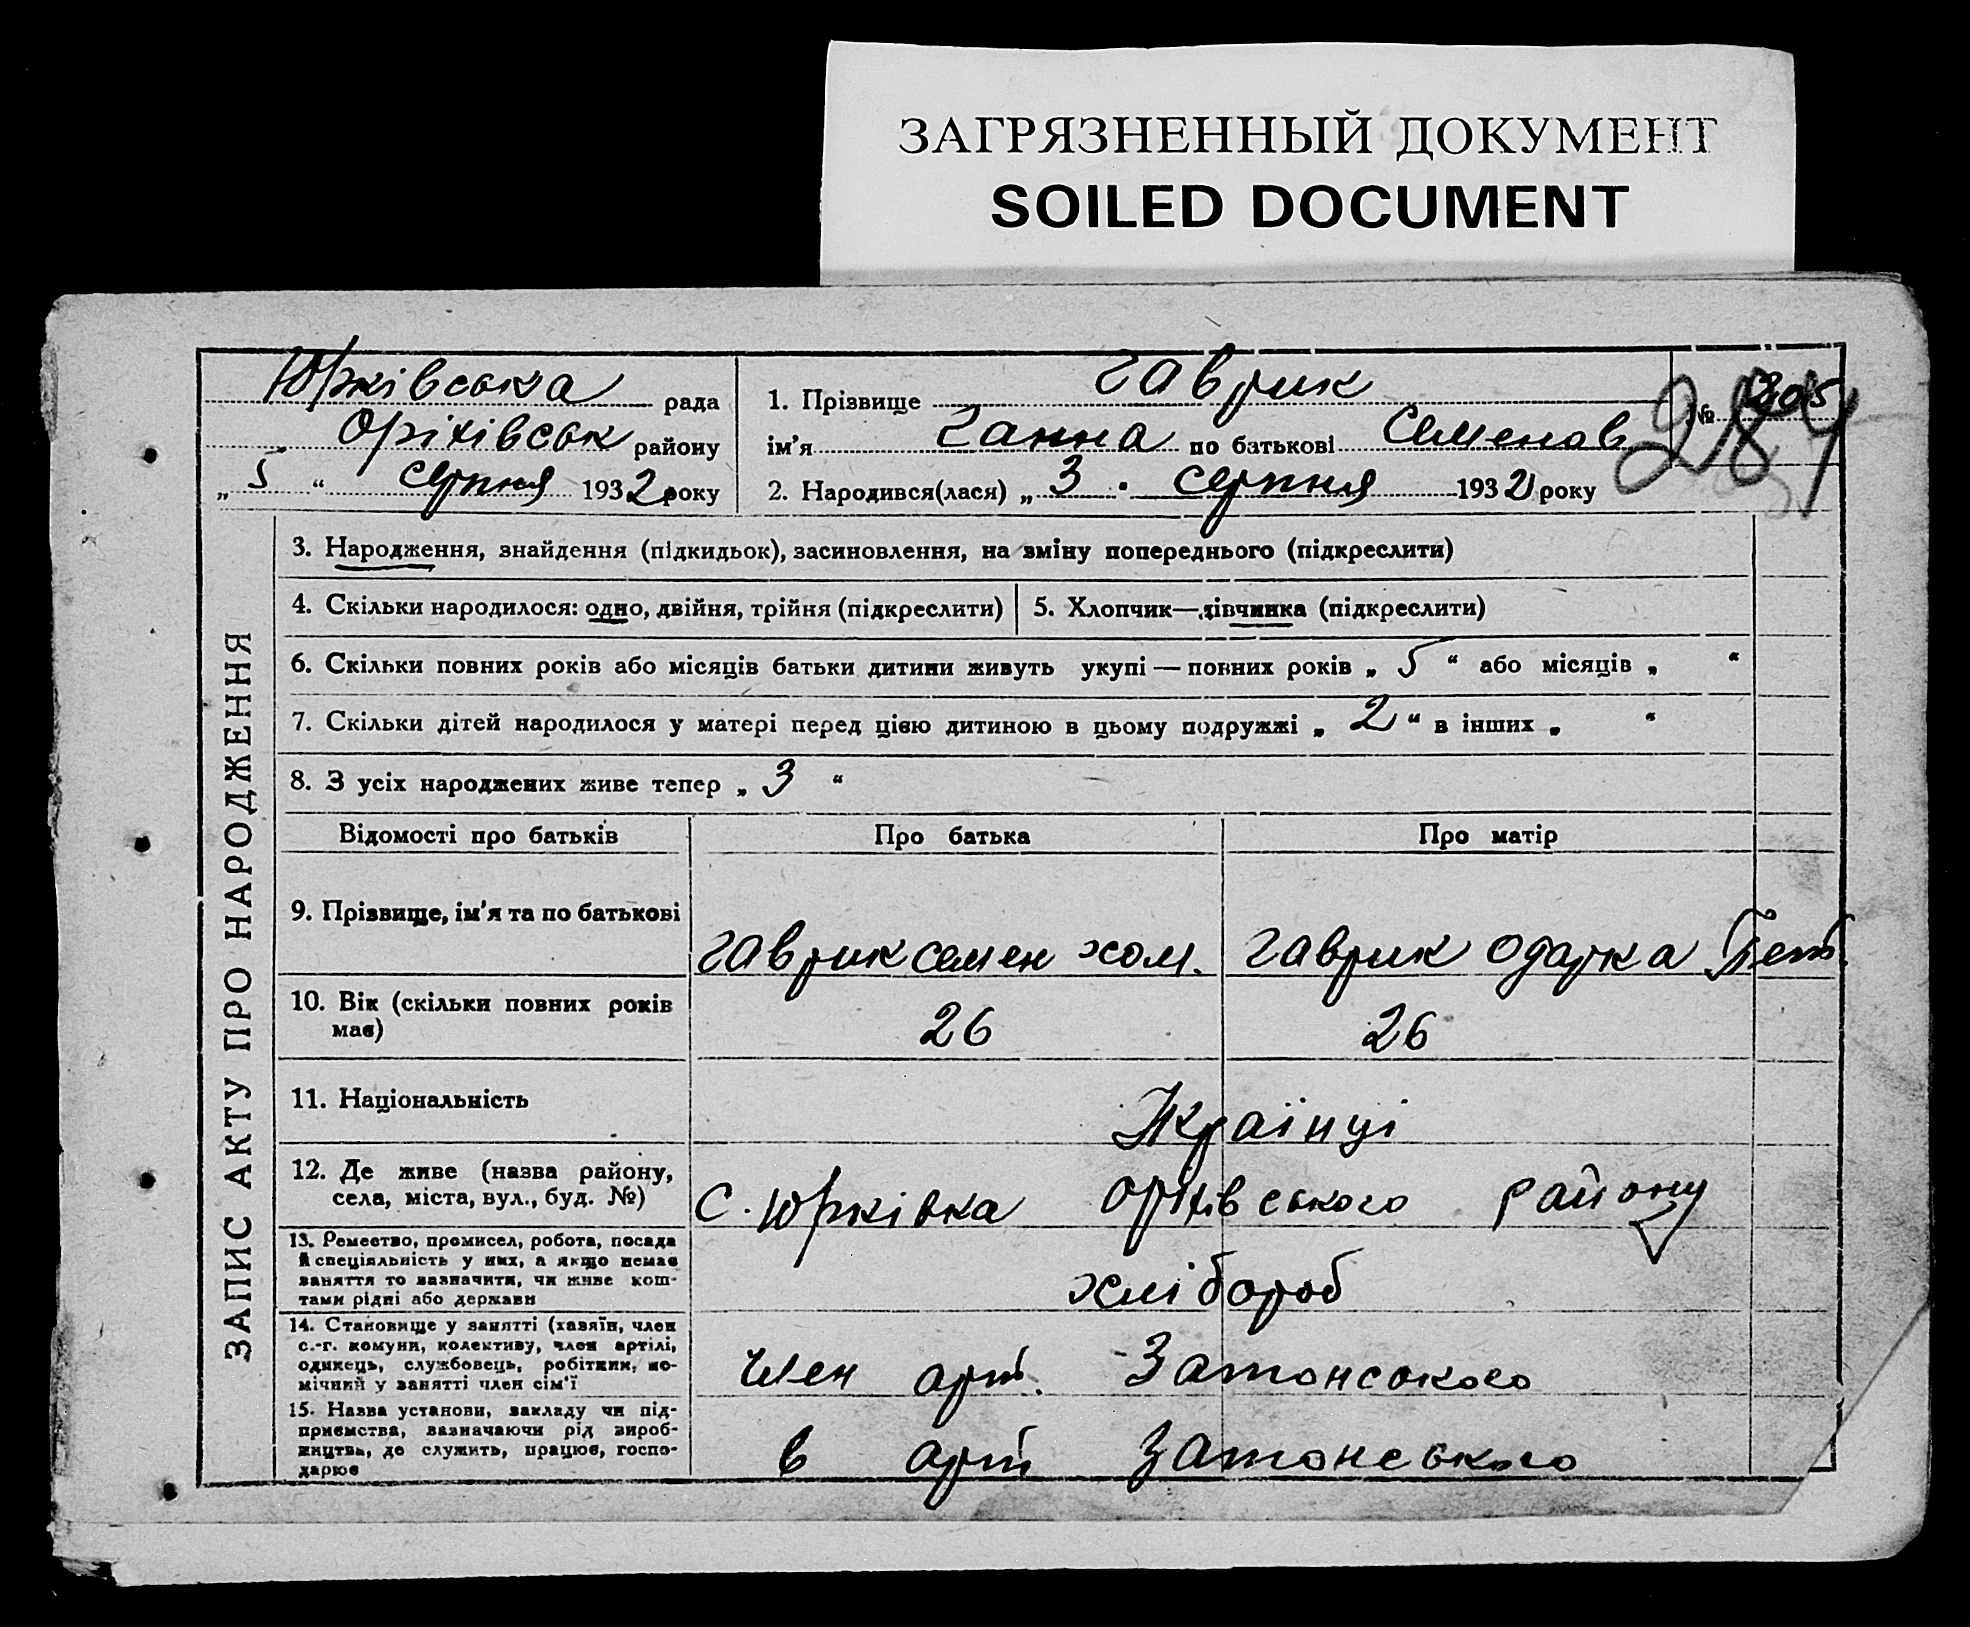 ЗАГРЯЗНЕННЫЙ ДОКУМЕНТ
SOILED DOCUMENT
Юрківська рада
Оріхівськ району
„ 5 “ серпня 1932 року
1. Прізвище Гаврик
ім’я Ганна по батькові Семенов
2. Народився(лася) „ 3 . серпня 1932 року
№ 305
284
ЗАПИС АКТУ ПРО НАРОДЖЕННЯ
3. Народження, знайдення (підкидьок), засиновлення, на зміну попереднього (підкреслити)
4. Скільки народилося: одно, двійня, трійня (підкреслити)
5. Хлопчик—дівчинка (підкреслити)
6. Скільки повних років або місяців батьки дитини живуть укупі — повних років „ 5 “ або місяців „ “
7. Скільки дітей народилося у матері перед цією дитиною в цьому подружжі „ 2 “ в інших „ “
8. З усіх народжених живе тепер „ 3 “
Відомості про батьків Про батька Про матір
9. Прізвище, ім’я та по батькові
Гаврик семен хом. Гаврик одарка Пет.
10. Вік (скільки повних років
має)
26 26
11. Національність
Українці
12. Де живе (назва району,
села, міста, вул., буд. №)
с. Юрківка Оріхівського району
13. Ремество, промисел, робота, посада
й спеціяльність у них, а якщо немає
заняття то зазначити, чи живе кош-
тами рідні або держави
хлібороб
14. Становище у занятті (хазяїн, член
с.-г. комуни, колективу, член артілі,
одинець, службовець, робітник, по-
мічний у занятті член сім’ї
член арт. Затонського
15. Назва установи, закладу чи під-
приємства, зазначаючи рід вироб-
ництва, де служить, працює, госпо-
дарює
в арт Затонського